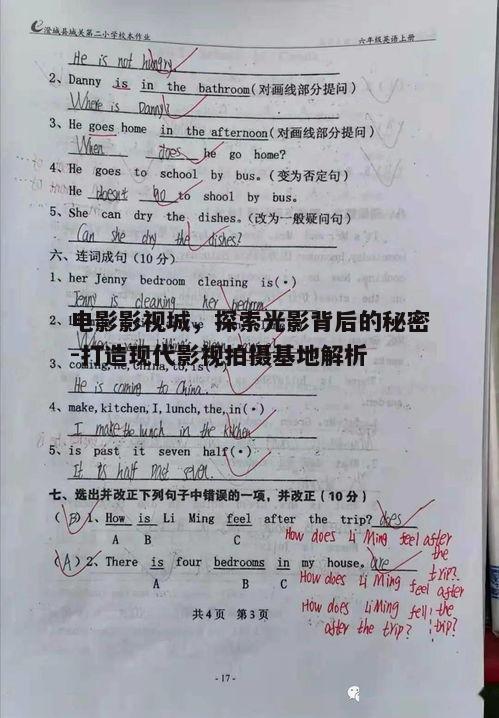 澄城县城关第二小学校本作业 六年级英语上册
He is not hungry
2、Danny is in the bathroom(对画线部分提问)
Where is Danny?
3、He goes home in the afternoon(对画线部分提问)
When does he go home?
4、He goes to school by bus.(变为否定句)
He doesn't go to shool by bus.
5、She can dry the dishes.(改为一般疑问句)
Can she dry the dishes?
六、连词成句(10分)
1、her Jenny bedroom cleaning is(·)
Jenny is cleaning her bedroom
电影影视城,探索光影背后的秘密
-打造现代影视拍摄基地解析
3、coming,he,China,to,is(
He is coming to China.
4、make,kitchen,I,lunch,the,in(·)
I make the lunch in the kitchen
5、is past it seven half(·)
It is half past seven.
七、选出并改正下列句子中错误的一项,并改正(10分)
(B)1、How is Li Ming feel after the trip? does
A B C
How does Li Ming feel after the trip?
(A)2、There is four bedrooms in my house. are
A B C
How does Li Ming feel after the trip?
How does LiMing fell after the trip?
共4页 第3页
-17-